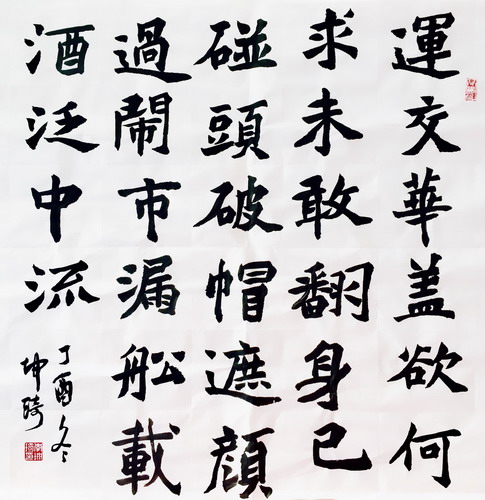 運交華盖欲何
求未敢翻身已
碰頭破帽遮顔
過鬧市漏船載
酒泛中流
丁酉冬
坤琦